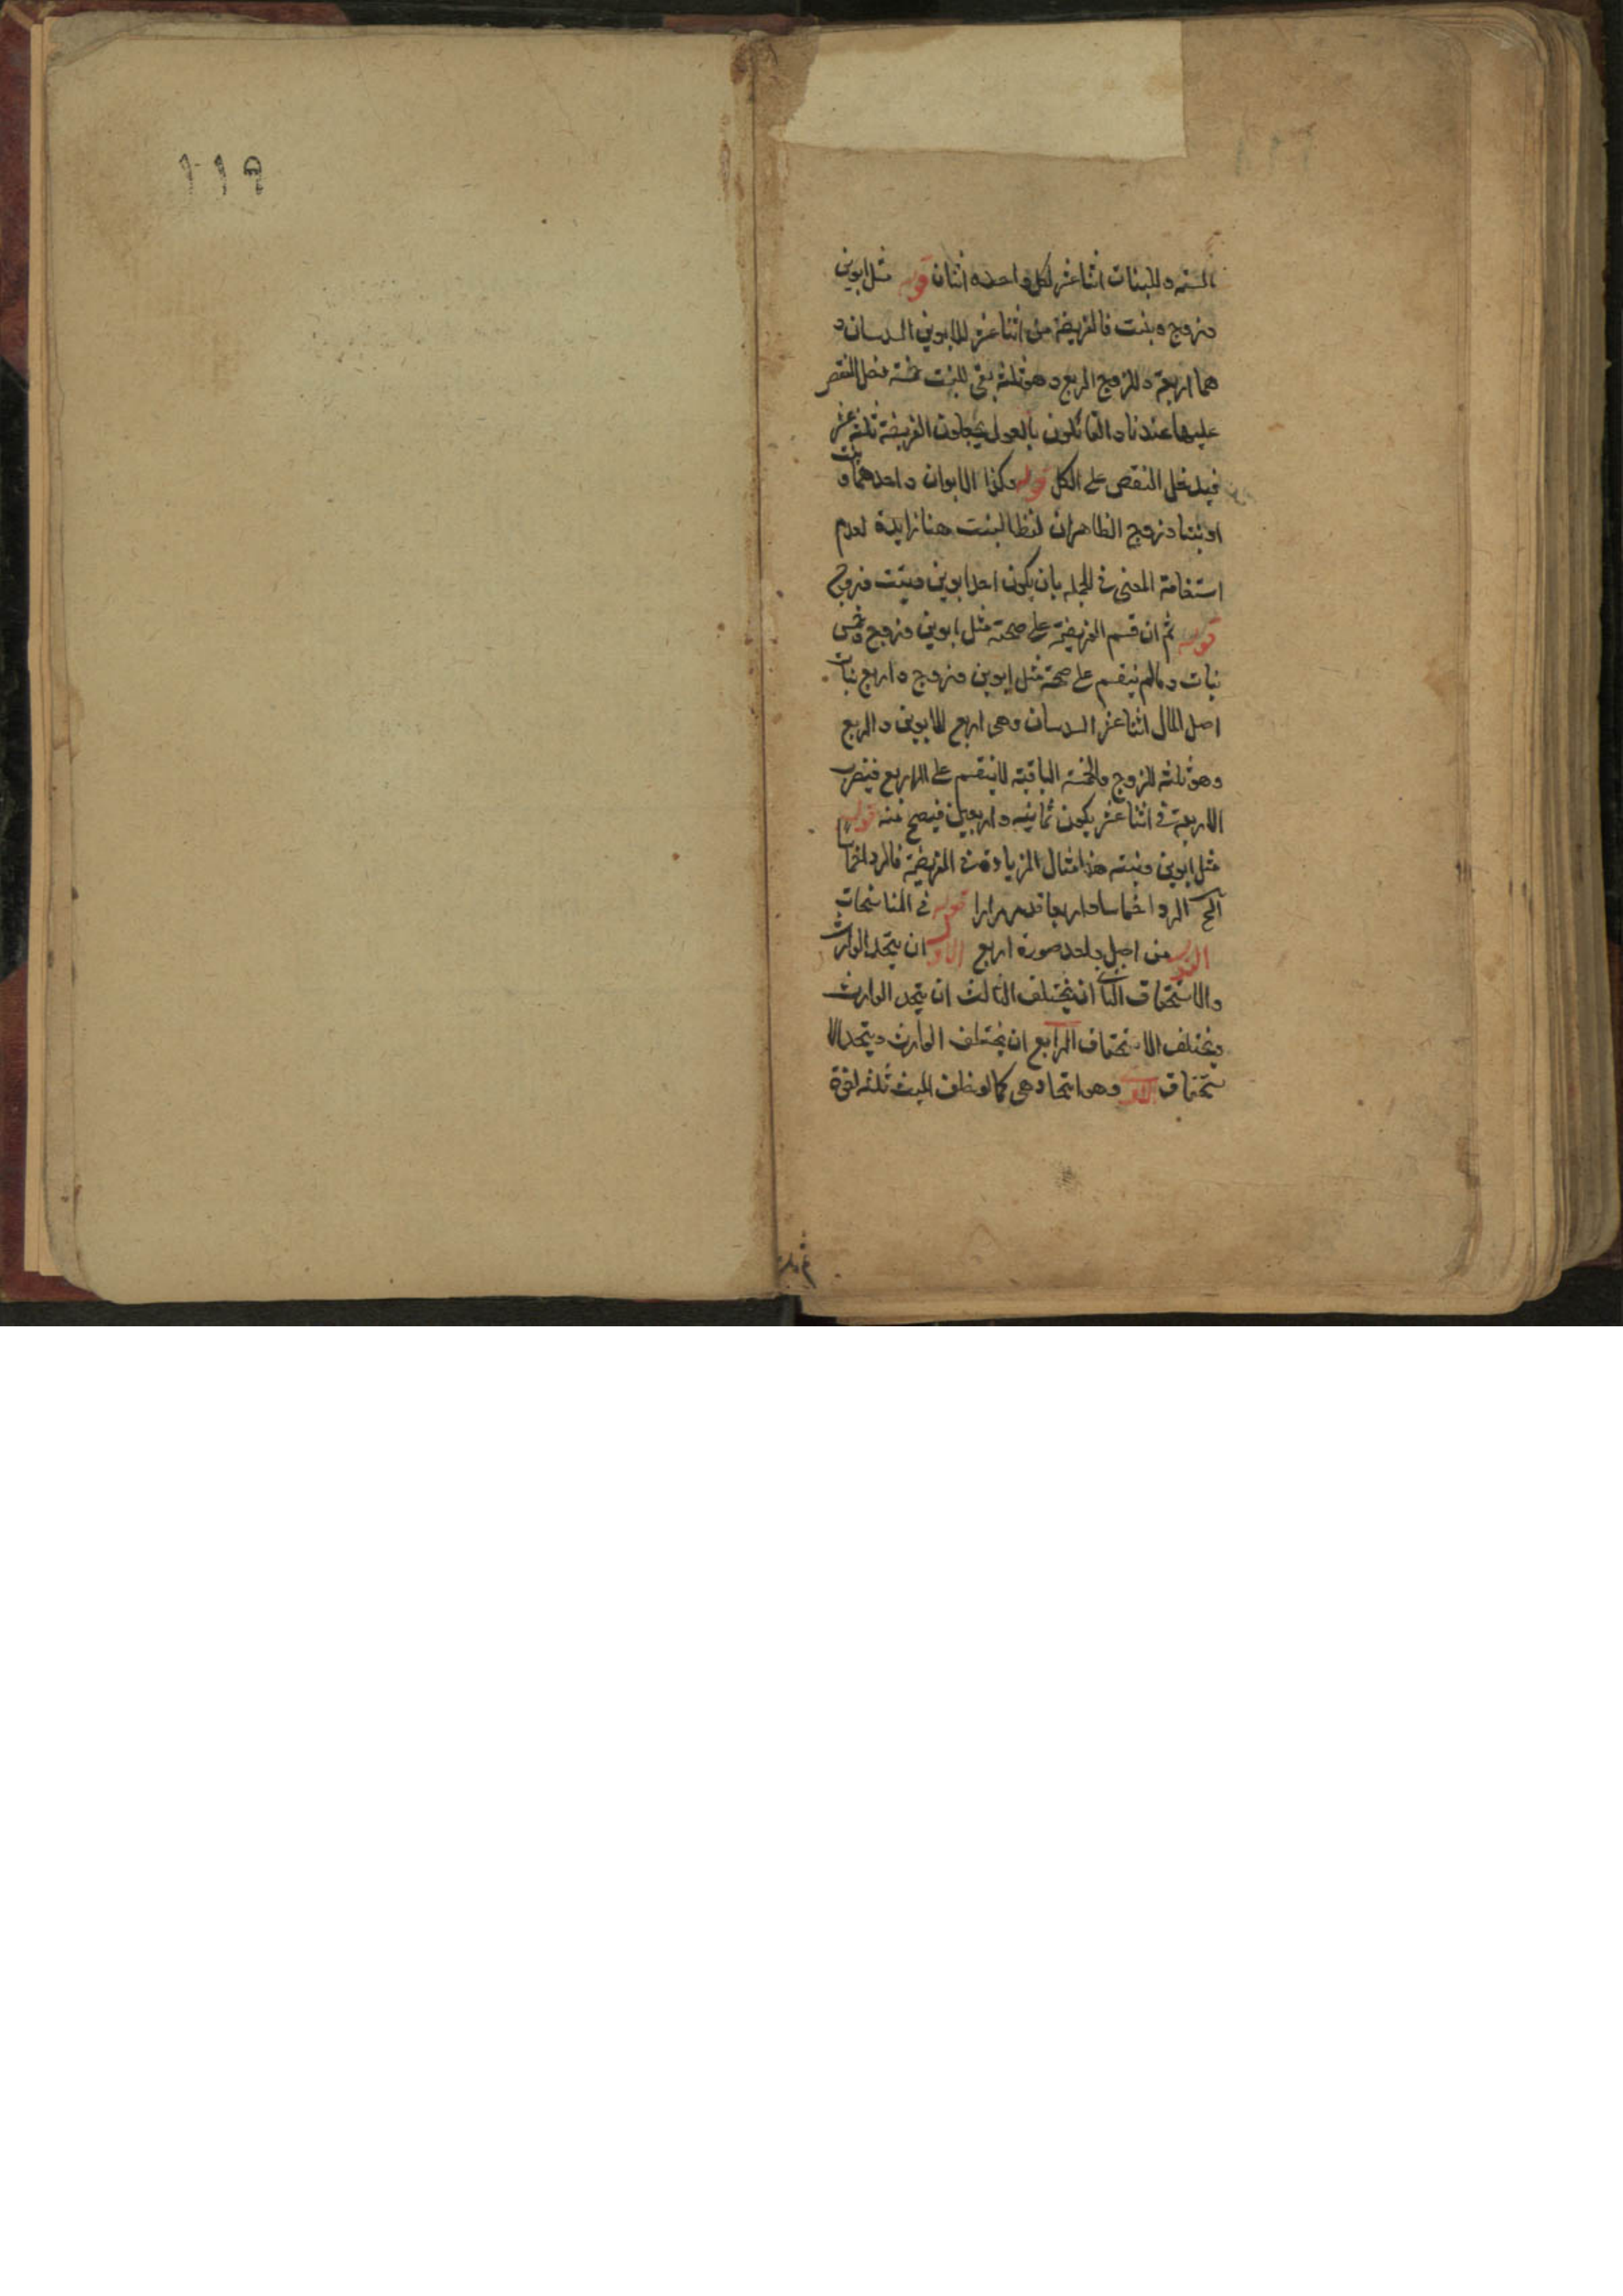 الستة وللبنات اثنا عشر لكل واحدة اثنان قوله مثل ابوين
وزوج وبنت فالفريضة من اثنا عشر للابوين السدسان و
هما اربعة وللزوج الربع وهو ثلثة بقى للبنت خمسة فدخل النقص
عليها عندنا والقائلون بالعول يجعلون الفريضة ثلثة عشر
فيدخل النقص على الكل قوله وكذا الابوان واحدهما وبنت
او بنتا وزوج الظاهر ان لفظ البنت هنا زايدة لعدم
استقامة المعنى في الجملة بان يكون احد ابوين وبنت وزوج
قوله ثم ان قسم الفريضة على صحة مثل ابوين وزوج وخمس
بنات ومالم ينقسم على صحة مثل ابوين وزوج واربع بنات
اصل المال اثنا عشر السدسان وهى اربع للابوين والربع
وهو ثلثة للزوج والخمسة الباقية لا ينقسم على الاربع فيضرب
الاربعة في اثنا عشر يكون ثمانيه واربعين فيصح منه قوله
مثل ابوين وبنت هذا مثال الزيادة في الفريضة فالرد اخماسا
الخ الرد اخماسا وارباعا قد مر مرارا قوله في المناسخات
من اصل واحد صورة اربع الاول ان يتحد الوارث
والاستحقاق الثانى ان يختلف الثالث ان يتحد الوارث
ويختلف الاستحقاق الرابع ان يختلف الوارث ويتحد الا
ستحقاق الاول وهو اتحادهى كما لو خلف الميت ثلثه اخوة
119